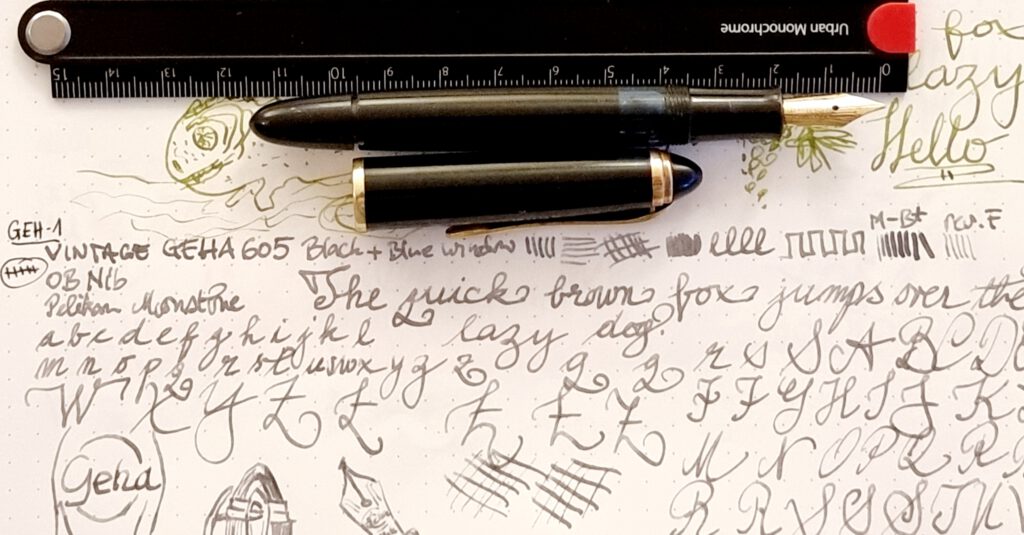 Urban Monochrome
15 14 13 12 11 10 9 8 7 6 5 4 3 2 1 0
fox
lazy
Hello
GEH-1
VINTAGE GEHA 605 Black + Blue window
M-B+ rev. F
OB Nib
Pelikan Moonstone
The quick brown fox jumps over the
lazy dog.
a b c d e f g h i j k l
m n o p q r s t u v w x y z
r s S A B C D
F F G H I J K
W X Y Z Z
M N O P Q R
R R S S S T
Geha